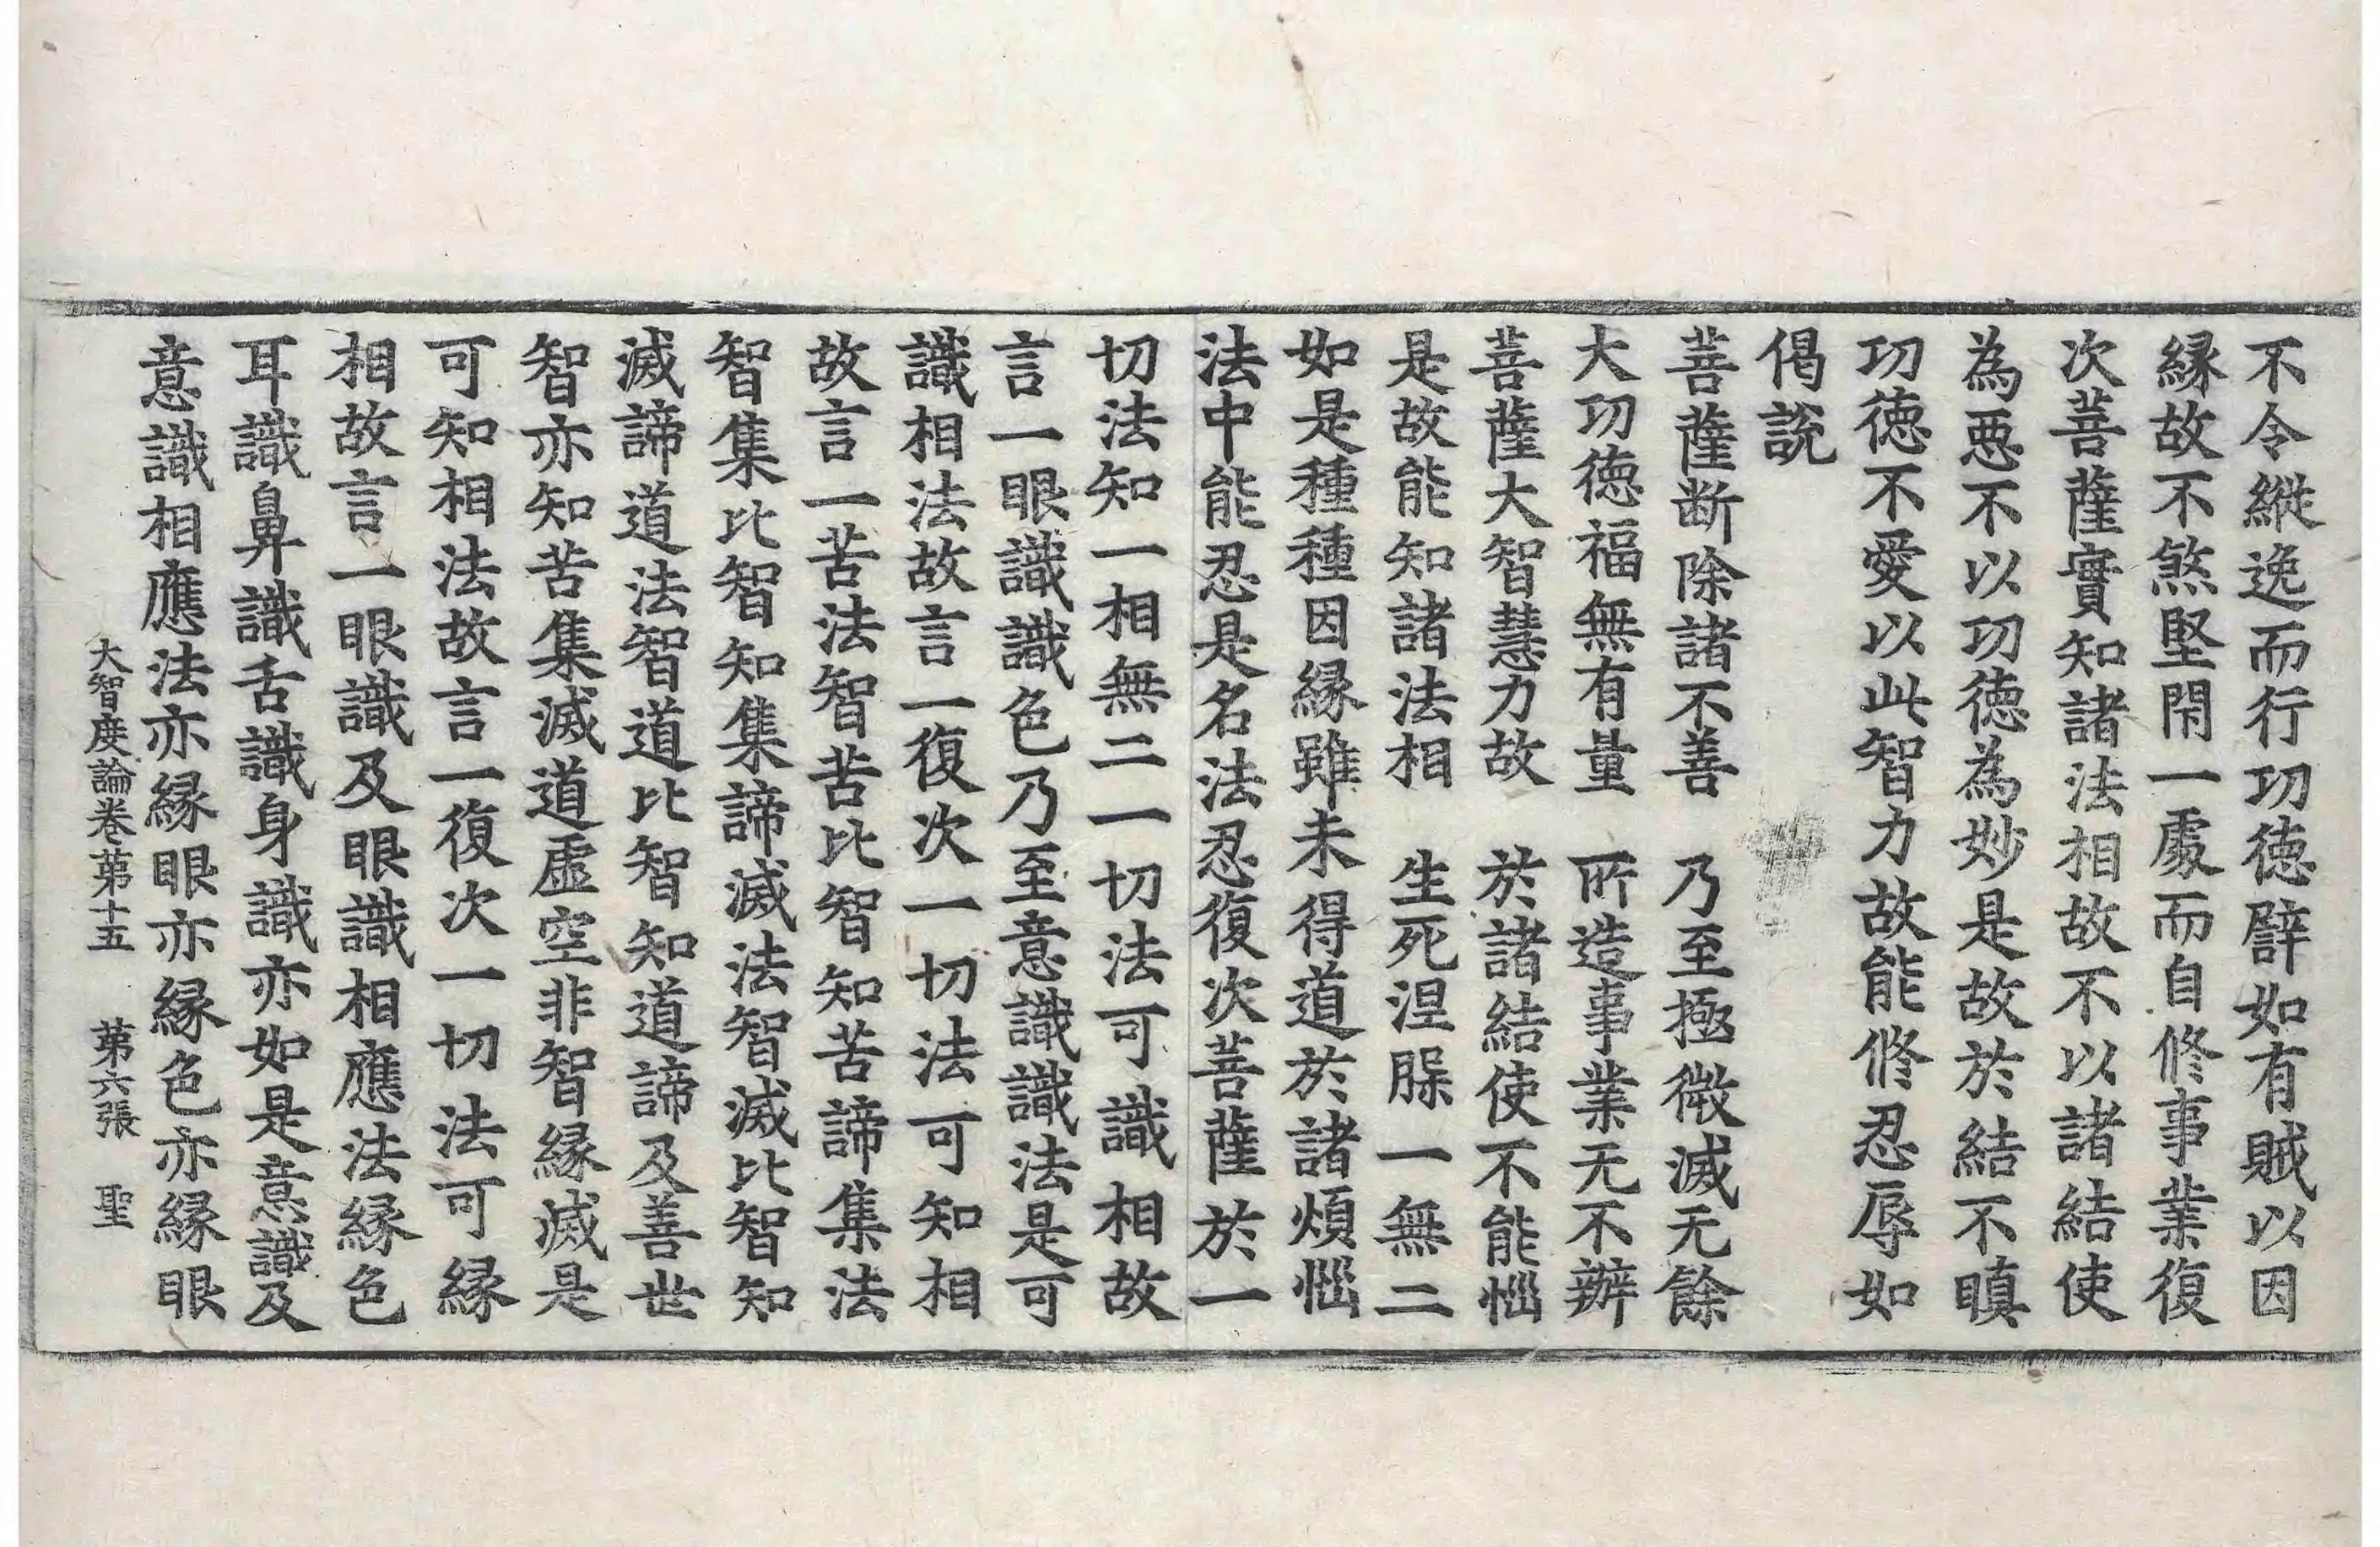 不令縱逸而行功徳譬如有賊以因
縁故不煞堅閇一處而自修事業復
次菩薩實知諸法相故不以諸結使
為惡不以功徳為妙是故於結不瞋
功徳不愛以此智力故能修忍辱如
偈說
菩薩断除諸不善　乃至極微滅无餘
大功徳福無有量　所造事業无不辦
菩薩大智慧力故　於諸結使不能惱
是故能知諸法相　生死涅槃一無二
如是種種因縁雖未得道於諸煩惱
法中能忍是名法忍復次菩薩於一
切法知一相無二一切法可識相故
言一眼識識色乃至意識識法是可
識相法故言一復次一切法可知相
故言一苦法智苦比智知苦諦集法
智集比智知集諦滅法智滅比智知
滅諦道法智道比智知道諦及善世
智亦知苦集滅道虛空非智縁滅是
可知相法故言一復次一切法可縁
相故言一眼識及眼識相應法縁色
耳識鼻識舌識身識亦如是意識及
意識相應法亦縁眼亦縁色亦縁眼
大智度論卷苐十五　苐六張　聖